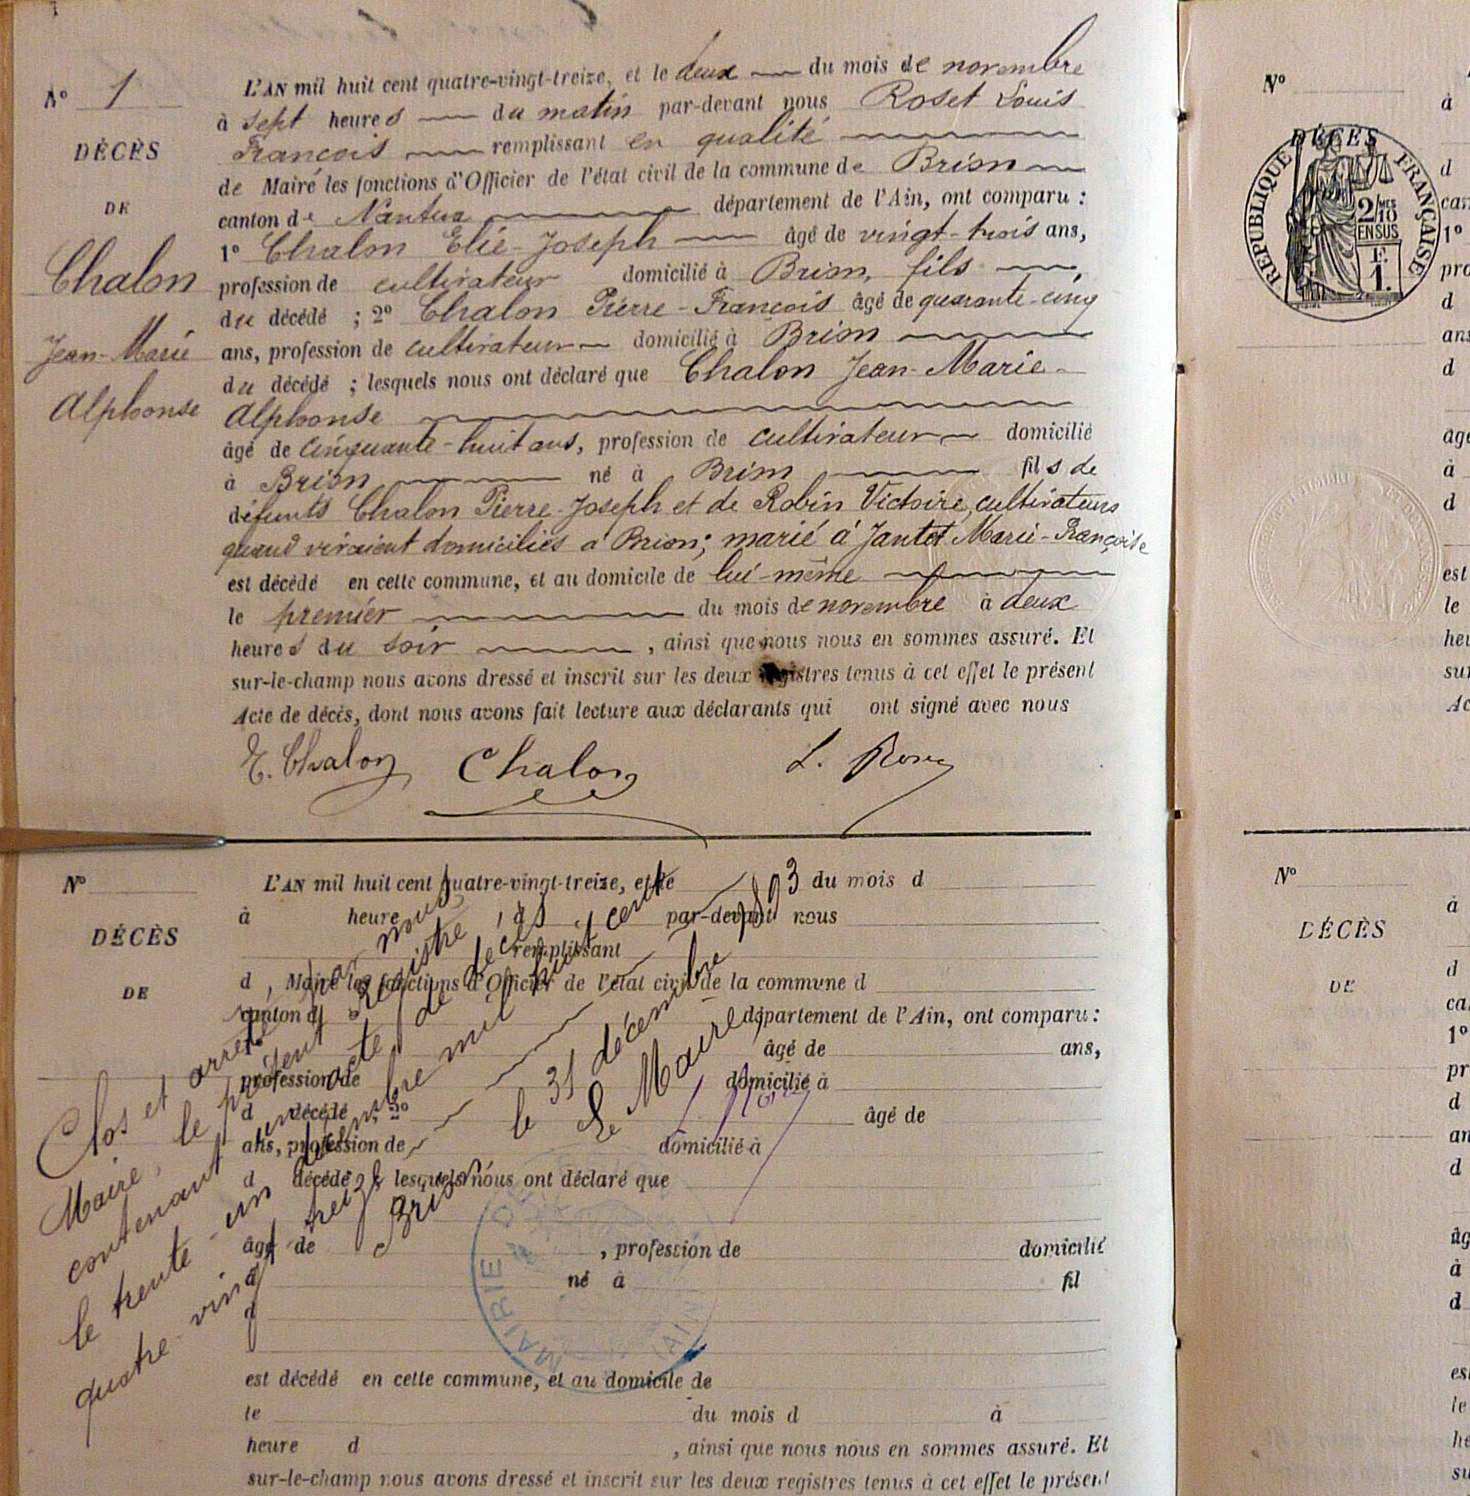 N° 1
DÉCÈS
DE
Chalon
Jean-Marie
Alphonse
L'AN mil huit cent quatre-vingt-treize, et le deux du mois de novembre
à sept heures du matin par-devant nous Roset Louis
François remplissant en qualité
de Maire les fonctions d'Officier de l'état civil de la commune de Brion
canton de Nantua département de l'Ain, ont comparu :
1° Chalon Elie-Joseph âgé de vingt-trois ans,
profession de cultivateur domicilié à Brion, fils
du décédé ; 2° Chalon Pierre-François âgé de quarante-cinq
ans, profession de cultivateur domicilié à Brion
du décédé ; lesquels nous ont déclaré que Chalon Jean-Marie-
Alphonse
âgé de cinquante-huit ans, profession de cultivateur domicilié
à Brion né à Brion fils de
défunts Chalon Pierre-Joseph et de Robin Victoire, cultivateurs
quand vivaient domiciliés à Brion; marié à Jantet Marie-Françoise
est décédé en cette commune, et au domicile de lui-même
le premier du mois de novembre à deux
heures du soir , ainsi que nous nous en sommes assuré. Et
sur-le-champ nous avons dressé et inscrit sur les deux registres tenus à cet effet le présent
Acte de décès, dont nous avons fait lecture aux déclarants qui ont signé avec nous
E. Chalon Chalon L.
N°
DÉCÈS
DE
L'AN mil huit cent quatre-vingt-treize, et le du mois d
à heure d par-devant nous
remplissant
d , Maire les fonctions d'Officier de l'état civil de la commune d
canton d département de l'Ain, ont comparu :
1° âgé de ans,
profession de domicilié à
d décédé ; 2° âgé de
ans, profession de domicilié à
d décédé ; lesquels nous ont déclaré que
âgé de , profession de domicilié
à né à fil
d
est décédé en cette commune, et au domicile de
le du mois d à
heure d , ainsi que nous nous en sommes assuré. Et
sur-le-champ nous avons dressé et inscrit sur les deux registres tenus à cet effet le présent
Clos et arrêté par nous,
Maire, le présent registre
contenant un acte de décès
le trente-un décembre mil huit cent
quatre-vingt treize
Brion le 31 décembre 1893
Le Maire,
MAIRIE DE
AIN
N°
DÉCÈS
RÉPUBLIQUE FRANÇAISE
2/10 MES
EN SUS
F.
1.
à
d
can
1°
pro
d
ans
d
âgé
à
d
est
le
heu
sur
Ac
N°
DÉCÈS
DE
à
d
ca
1°
pr
d
an
d
âg
à
d
es
le
he
su